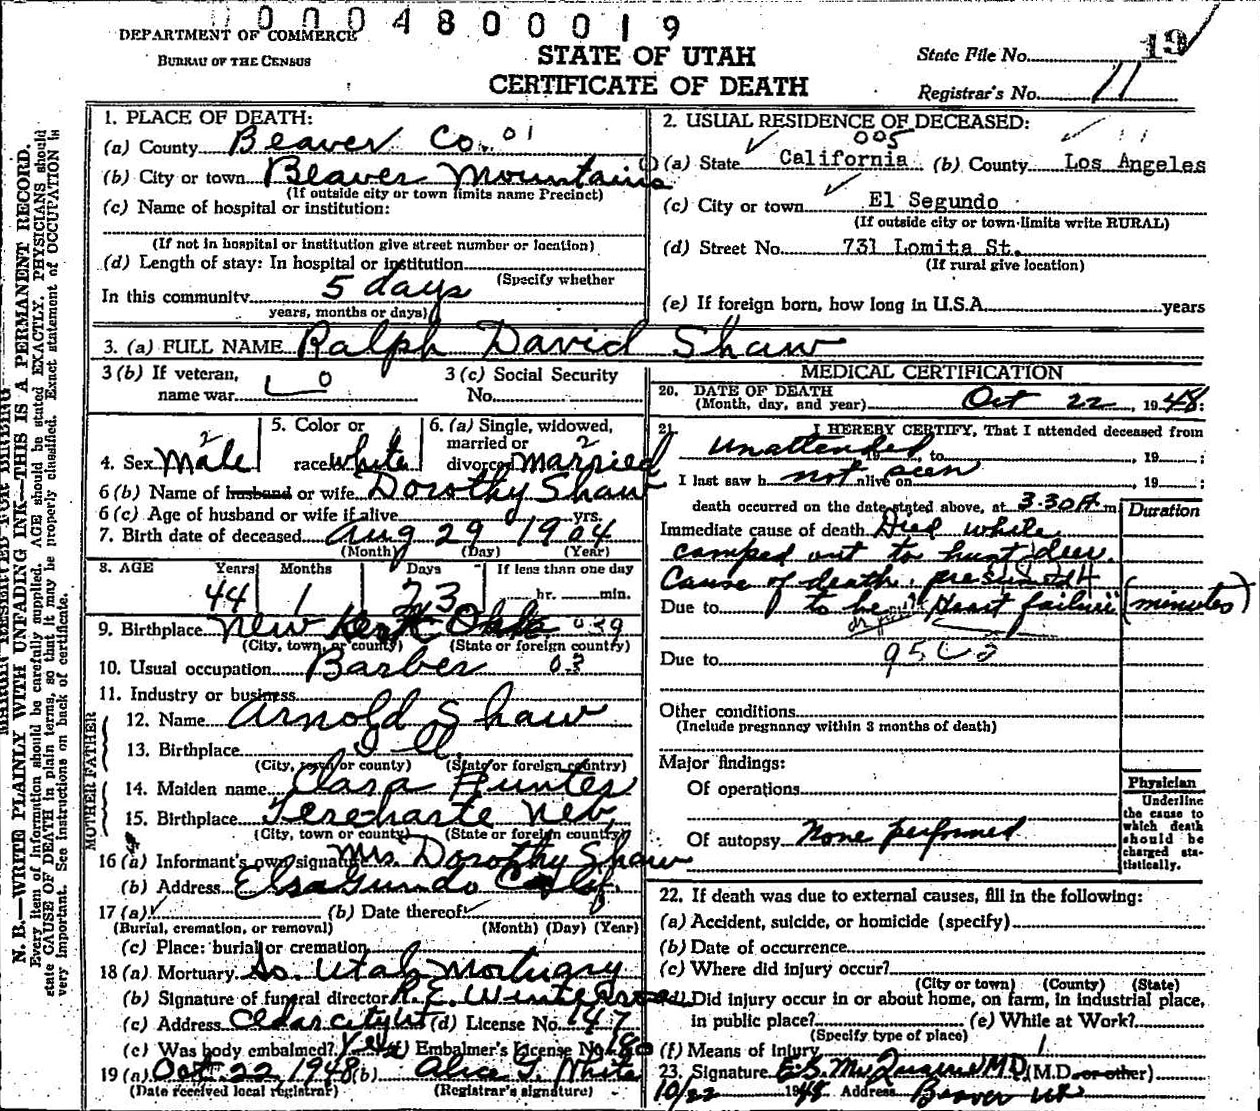 00004800019
DEPARTMENT OF COMMERCE
BUREAU OF THE CENSUS
STATE OF UTAH
CERTIFICATE OF DEATH
State File No. 19
Registrar's No. 11
N. B.—WRITE PLAINLY WITH UNFADING INK—THIS IS A PERMANENT RECORD.
Every item of information should be carefully supplied. AGE should be stated EXACTLY. PHYSICIANS should
state CAUSE OF DEATH in plain terms, so that it may be properly classified. Exact statement of OCCUPATION is
very important. See instructions on back of certificate.
1. PLACE OF DEATH:
(a) County Beaver Co. 01
(b) City or town Beaver Mountains
(If outside city or town limits name Precinct)
(c) Name of hospital or institution:
(If not in hospital or institution give street number or location)
(d) Length of stay: In hospital or institution
(Specify whether
In this community 5 days
years, months or days)
2. USUAL RESIDENCE OF DECEASED:
005
(a) State California (b) County Los Angeles
(c) City or town El Segundo
(If outside city or town limits write RURAL)
(d) Street No. 731 Lomita St.
(If rural give location)
(e) If foreign born, how long in U.S.A. years
3. (a) FULL NAME Ralph David Shaw
3 (b) If veteran, name war 0
3 (c) Social Security No.
4. Sex Male
5. Color or race white
6. (a) Single, widowed, married or divorced married
6 (b) Name of husband or wife Dorothy Shaw
6 (c) Age of husband or wife if alive yrs.
7. Birth date of deceased Aug 29 1904
(Month) (Day) (Year)
8. AGE Years Months Days If less than one day
44 1 23 hr. min.
9. Birthplace New 039
(City, town, or county) (State or foreign country)
10. Usual occupation Barber 03
11. Industry or business
FATHER
12. Name Arnold Shaw
13. Birthplace Ill
(City, town or county) (State or foreign country)
MOTHER
14. Maiden name Clara Hunter
15. Birthplace
(City, town or county) (State or foreign country)
16 (a) Informant's own signature Mrs. Dorothy Shaw
(b) Address Elsagundo Calif
17 (a) (b) Date thereof
(Burial, cremation, or removal) (Month) (Day) (Year)
(c) Place: burial or cremation
18 (a) Mortuary So. Utah Mortuary
(b) Signature of funeral director R. E.
(c) Address Cedar City Ut (d) License No. 147
(e) Was body embalmed? Yes (f) Embalmer's License No. 180
19 (a) Oct 22 1948 (b) Alice G. White
(Date received local registrar) (Registrar's signature)
MEDICAL CERTIFICATION
20. DATE OF DEATH
(Month, day, and year) Oct 22, 1948:
21. I HEREBY CERTIFY, That I attended deceased from
Unattended 19 , to , 19 ;
I last saw h not seen alive on , 19 ;
death occurred on the date stated above, at 3:30 A m.
Duration
Immediate cause of death Died while
camped out to hunt deer.
Cause of death presumed
Due to to be "Heart failure" (minutes)
Due to
Other conditions
(Include pregnancy within 3 months of death)
Major findings:
Of operations
Of autopsy None performed
Physician
Underline
the cause to
which death
should be
charged sta-
tistically.
22. If death was due to external causes, fill in the following:
(a) Accident, suicide, or homicide (specify)
(b) Date of occurrence
(c) Where did injury occur?
(City or town) (County) (State)
(d) Did injury occur in or about home, on farm, in industrial place,
in public place? (e) While at Work?
(Specify type of place)
(f) Means of injury
23. Signature E. S. MD (M.D. or other)
10/22 1948 Address Beaver Ut